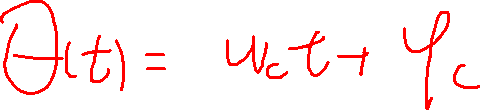 θ(t) = ω_c t + φ_c